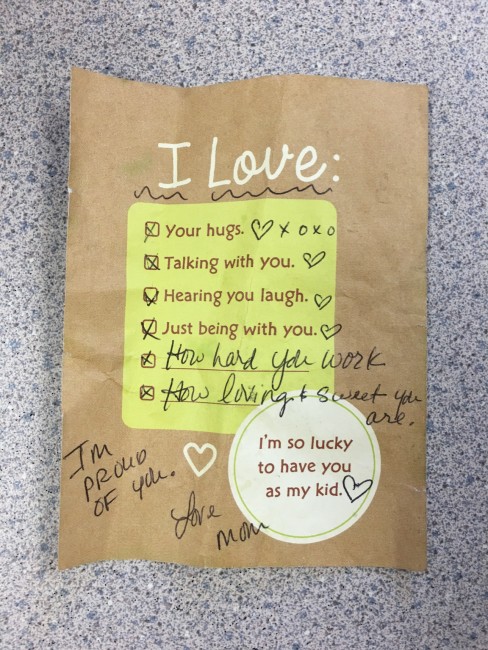 I Love:
Your hugs. x o x o
Talking with you.
Hearing you laugh.
Just being with you.
How hard you work
How loving & sweet you
are.
I'm so lucky
to have you
as my kid.
I'm
PROUD
OF you.
Love
mom